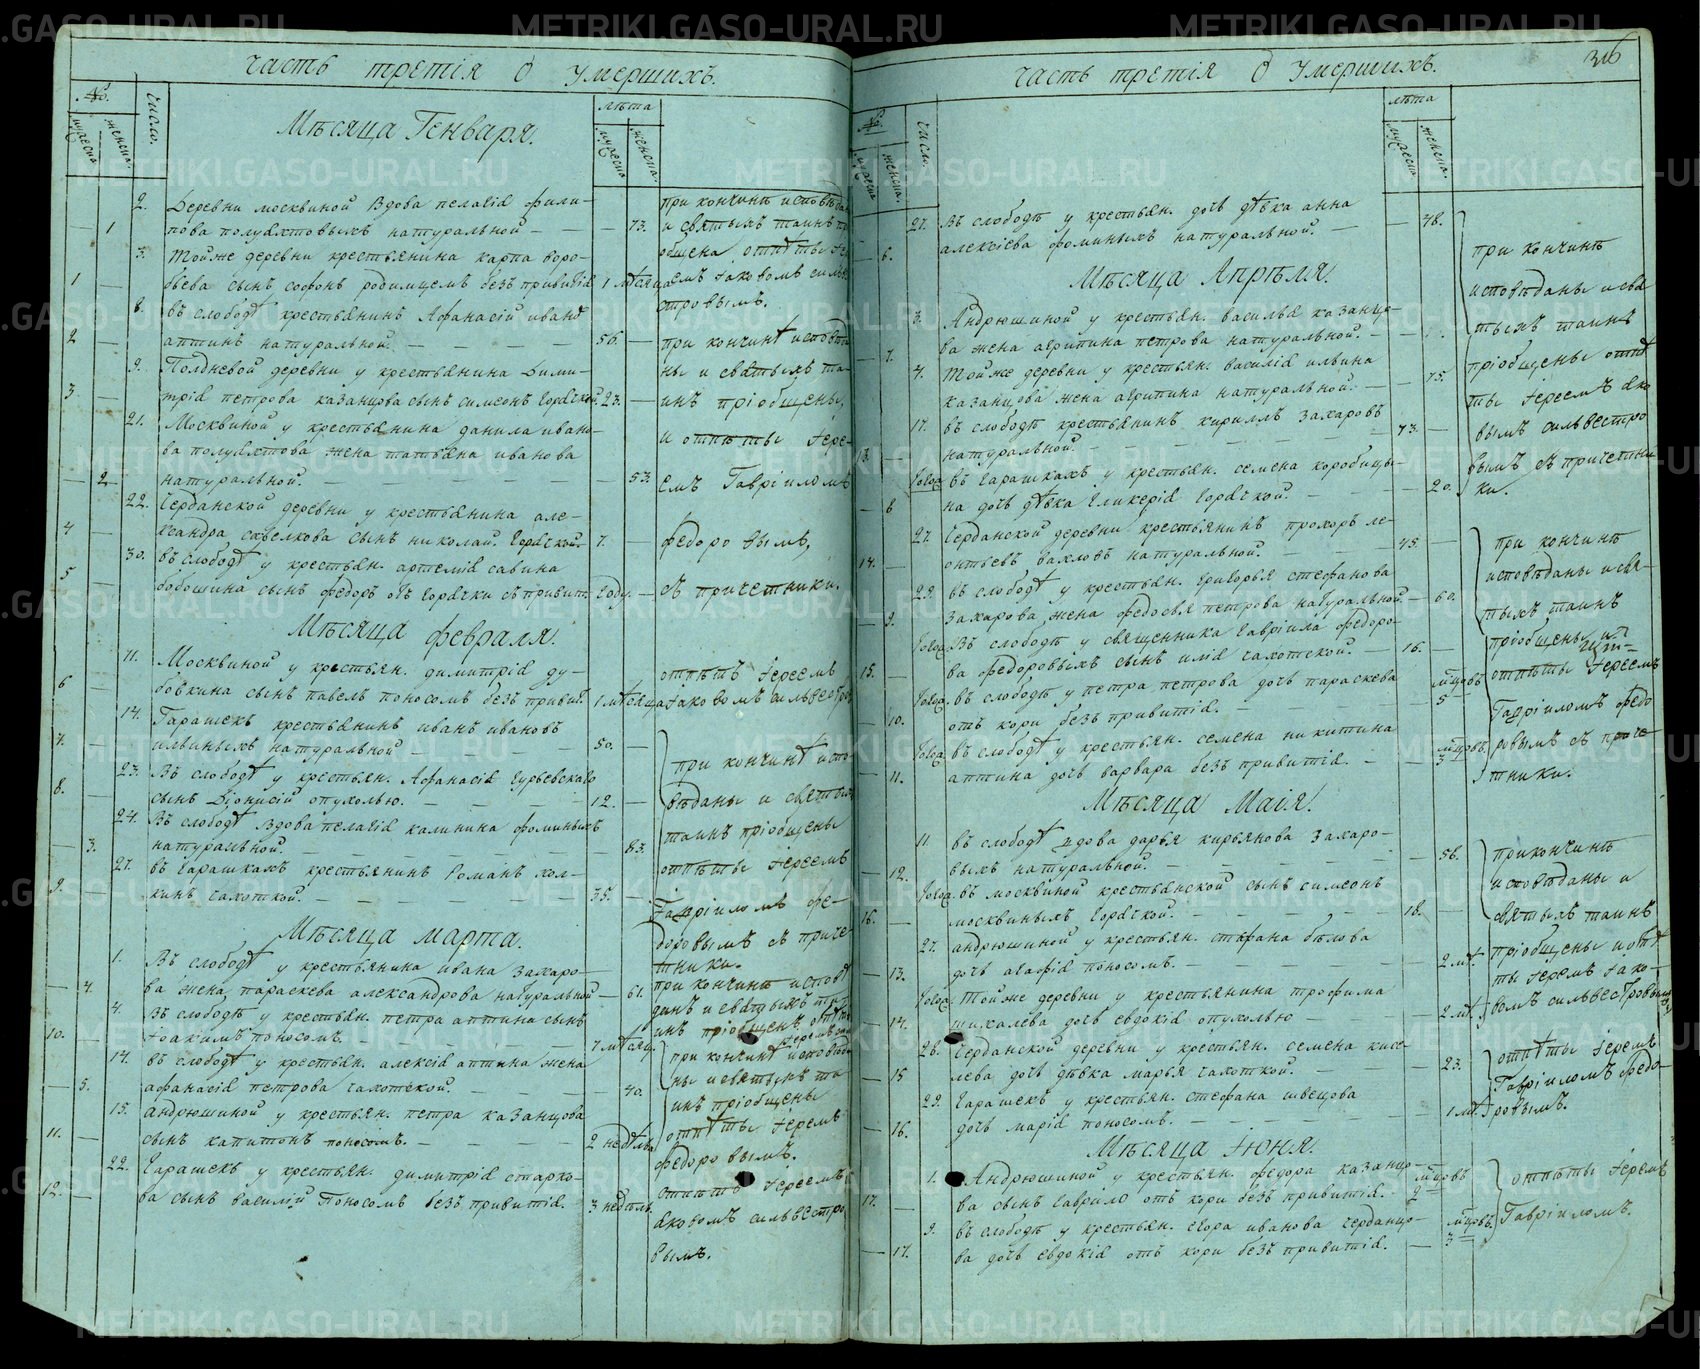 часть третія о умершихъ.
№.
мужеска
женска.
число.
Мѣсяца Генваря.
лѣта
мужеска
женска.
2. Деревни москвиной вдова пелагія фили-
— 1 пова полуяхтовыхъ натуральной — — 73.
3. Тойже деревни крестьянина карпа воро-
1 — бьева сынъ софонъ родимцемъ безъ привитія 1 мѣсяца
8. въ слободѣ крестьянинъ Афанасій ивано
2 — аптинъ натуральной. — — — 56. —
9. Полдневой деревни у крестьянина Дими-
3 — трія петрова казанцова сынъ симеонъ горячкой 23. —
21. Москвиной у крестьянина данила ивано-
ва полуяхтова жена татьяна иванова
— 2 натуральной. — — — — 53.
22. Черданской деревни у крестьянина але-
4 — ксандра савелкова сынъ николай. Горячкой. 7. —
30. въ слободѣ у крестьян. артемія савина
5 — бабошина сынъ федоръ отъ горячки съ привит. году —
при кончинѣ исповѣдан
и святыхъ таинъ прі
общена, отпѣты іере
емъ іаковомъ сильве
стровымъ.
при кончинѣ исповѣда
ны и святыхъ та-
инъ пріобщены,
и отпѣты іере-
емъ Гавріиломъ
федоровымъ,
съ причетники.
Мѣсяца февраля.
11. Москвиной у крестьян. димитрія ду-
6 — бовкина сынъ павелъ поносомъ безъ привит. 1 мѣсяца
14. Гарашекъ крестьянинъ иванъ ивановъ
7. — ильиныхъ натуральной — — 50. —
23. Въ слободѣ у крестьян. Афанасія Гурьевскаго
8. — сынъ Діонисій опухолью. — — — 12. —
24. Въ слободѣ вдова пелагія калинина фоминыхъ
— 3. натуральной. — — — 83.
27. въ Гарашкахъ крестьянинъ Романъ хол-
9. — кинъ чахоткой. — — — 35. —
отпѣтъ іереемъ
іаковомъ сильвестров
при кончинѣ испо
вѣданы и святыхъ
таинъ пріобщены
отпѣты іереемъ
Гавріиломъ фе-
доровымъ съ приче
тники.
Мѣсяца марта.
1. Въ слободѣ у крестьянина ивана Захаро-
— 4. ва жена, параскева александрова натуральной — 61.
4. Въ слободѣ у крестьян. петра аптина сынъ
10. — іоакимъ поносомъ. — — — 7 мѣсяц.
14. въ слободѣ у крестьян. алексія аптина жена
— 5. афанасія петрова чахоткой. — — — 40.
15. андрюшиной у крестьян. петра казанцова
11. — сынъ капитонъ поносомъ. — — — 2 недѣли
22. Гарашекъ у крестьян. димитрія старко-
12. — ва сынъ василій поносомъ безъ привитія. 3 недѣль.
при кончинѣ исповѣ
данъ и святыхъ та
инъ пріобщенъ, отпѣт
при кончинѣ исповѣда
ны и святыхъ та
инъ пріобщены
отпѣты іереемъ
федоровымъ.
отпѣтъ іереемъ
яковомъ сильвестро
вымъ.
часть третія о умершихъ.
316
№.
мужеска
женска.
число.
лѣта
мужеска
женска.
27. Въ слободѣ у крестьян. дочь дѣвка анна
— 6. алексіева фоминыхъ натуральной. — — 48.
Мѣсяца Апрѣля.
3. Андрюшиной у крестьян. василья казанцо-
— 7. ва жена агрипина петрова натуральной. —
4. Тойже деревни у крестьян. василія ильина
казанцова жена агрипина натуральной. — — 75.
17. въ слободѣ крестьянинъ кириллъ захаровъ
13. — натуральной. — — — 73. —
въ Гарашкахъ у крестьян. семена коробицы-
— 8 на дочь дѣвка Гликерія Горячкой. — — 20.
27. Черданской деревни крестьянинъ прохоръ ле-
14. — онтьевъ вахловъ натуральной. — — 45. —
29. въ слободѣ у крестьян. Григорья стефанова
— 9. захарова, жена федосья петрова натуральной. — 60.
Въ слободѣ у священника Гавріила федоро-
15. — ва федоровыхъ сынъ илія чахоткой. — 16. —
въ слободѣ у петра петрова дочь параскева
— 10. отъ кори безъ привитія. — — — мцовъ 5
въ слободѣ у крестьян. семена никитина
— 11. аптина дочь варвара безъ привитія. — — мцовъ. 3
при кончинѣ
исповѣданы и свя
тыхъ таинъ
пріобщены отпѣ
ты іереемъ яко
вымъ сильвестро
вымъ съ причетни
ки.
при кончинѣ
исповѣданы и свя-
тыхъ таинъ
пріобщены
отпѣты іереемъ
Гавріиломъ федо
ровымъ съ приче
тники.
Мѣсяца Маія.
11 въ слободѣ вдова дарья кирьянова Захаро-
— 12. выхъ натуральной. — — — — 56.
въ москвиной крестьянской сынъ симеонъ
16. — москвиныхъ Горячкой. — — — 18. —
27. андрюшиной у крестьян. стефана бѣлова
— 13. дочь агафія поносомъ. — — — — 2 мѣ.
Тойже деревни у крестьянина трофима
— 14. шихалева дочь евдокія опухолью — — 2 мѣ.
28. Черданской деревни у крестьян. семена кисе-
— 15 лева дочь дѣвка марья чахоткой. — — — 23.
29. Гарашекъ у крестьян. стефана швецова
— 16. дочь марія поносомъ. — — — — 1 мѣ.
при кончинѣ
исповѣданы и
святыхъ таинъ
пріобщены и отпѣ
ты іереемъ іако-
вомъ сильвестровымъ
отпѣты іереемъ
Гавріиломъ федо-
ровымъ.
Мѣсяца іюня.
1. Андрюшиной у крестьян. федора казанцо- мцовъ
17. — ва сынъ Гаврило отъ кори безъ привитія. 2
9. въ слободѣ у крестьян. егора иванова черданцо- мцовъ.
— 17. ва дочь евдокія отъ кори безъ привитія. — 3
отпѣты іереемъ
Гавріиломъ.
METRIKI.GASO-URAL.RU